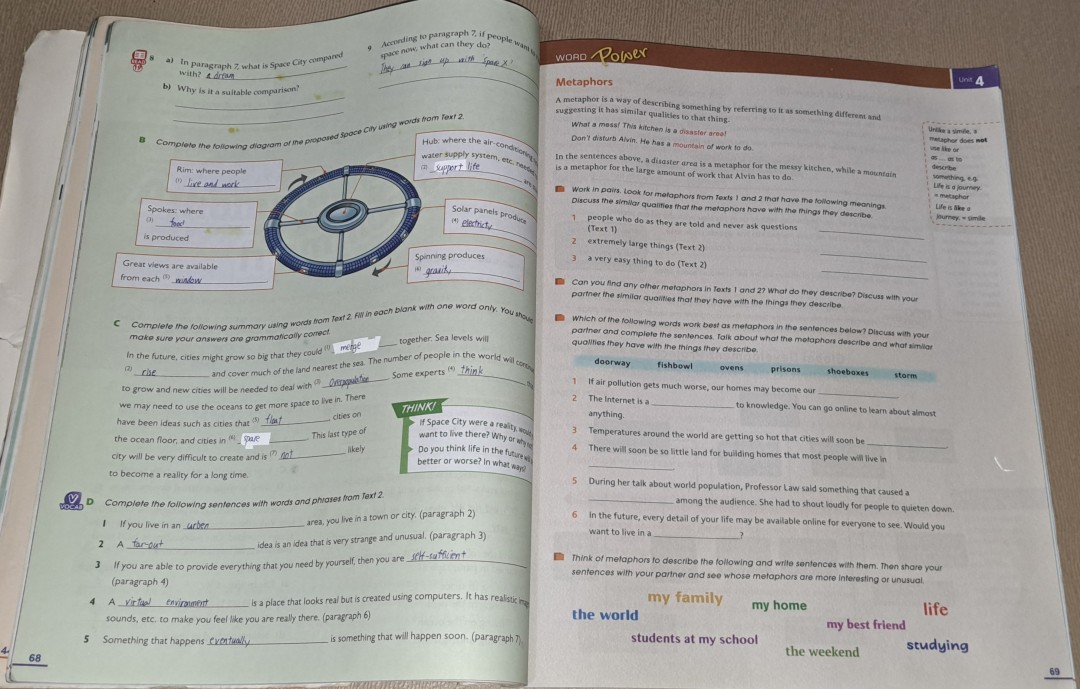 8 a) In paragraph 7, what is Space City compared
with? a dream
b) Why is it a suitable comparison?
9 According to paragraph 7, if people want
space now, what can they do?
They can sign up with Space X?
B Complete the following diagram of the proposed Space City using words from Text 2.
Rim: where people
(1) live and work
Hub: where the air-conditioning
water supply system, etc. needed
(2) support life
Spokes: where
(3) food
is produced
Solar panels produce
(4) electricity
Great views are available
from each (5) window
Spinning produces
(6) gravity
C Complete the following summary using words from Text 2. Fill in each blank with one word only. You should
make sure your answers are grammatically correct.
In the future, cities might grow so big that they could (1) merge together. Sea levels will
(2) rise and cover much of the land nearest the sea. The number of people in the world will
to grow and new cities will be needed to deal with (3) Overpopulation Some experts (4) think
we may need to use the oceans to get more space to live in. There
have been ideas such as cities that (5) float cities on
the ocean floor, and cities in (6) space. This last type of
city will be very difficult to create and is (7) not likely
to become a reality for a long time.
THINK!
If Space City were a reality,
want to live there? Why or why
Do you think life in the future
better or worse? In what ways?
VOCAB D Complete the following sentences with words and phrases from Text 2.
1 If you live in an urben area, you live in a town or city. (paragraph 2)
2 A far-out idea is an idea that is very strange and unusual. (paragraph 3)
3 If you are able to provide everything that you need by yourself, then you are self-sufficient
(paragraph 4)
4 A virtual envirnment is a place that looks real but is created using computers. It has realistic
sounds, etc. to make you feel like you are really there. (paragraph 6)
5 Something that happens eventually is something that will happen soon. (paragraph 7)
68
WORD Power
Unit 4
Metaphors
A metaphor is a way of describing something by referring to it as something different and
suggesting it has similar qualities to that thing.
What a mess! This kitchen is a disaster area!
Don't disturb Alvin. He has a mountain of work to do.
In the sentences above, a disaster area is a metaphor for the messy kitchen, while a mountain
is a metaphor for the large amount of work that Alvin has to do.
Unlike a simile, a
metaphor does not
use like or
as ... as to
describe
something, e.g.
Life is a journey.
= metaphor
Life is like a
journey. = simile
Work in pairs. Look for metaphors from Texts 1 and 2 that have the following meanings.
Discuss the similar qualities that the metaphors have with the things they describe.
1 people who do as they are told and never ask questions
(Text 1)
2 extremely large things (Text 2)
3 a very easy thing to do (Text 2)
Can you find any other metaphors in Texts 1 and 2? What do they describe? Discuss with your
partner the similar qualities that they have with the things they describe.
Which of the following words work best as metaphors in the sentences below? Discuss with your
partner and complete the sentences. Talk about what the metaphors describe and what similar
qualities they have with the things they describe.
doorway fishbowl ovens prisons shoeboxes storm
1 If air pollution gets much worse, our homes may become our
2 The Internet is a to knowledge. You can go online to learn about almost
anything.
3 Temperatures around the world are getting so hot that cities will soon be
4 There will soon be so little land for building homes that most people will live in
5 During her talk about world population, Professor Law said something that caused a
among the audience. She had to shout loudly for people to quieten down.
6 In the future, every detail of your life may be available online for everyone to see. Would you
want to live in a ?
Think of metaphors to describe the following and write sentences with them. Then share your
sentences with your partner and see whose metaphors are more interesting or unusual.
the world my family my home life
students at my school my best friend
the weekend studying
69